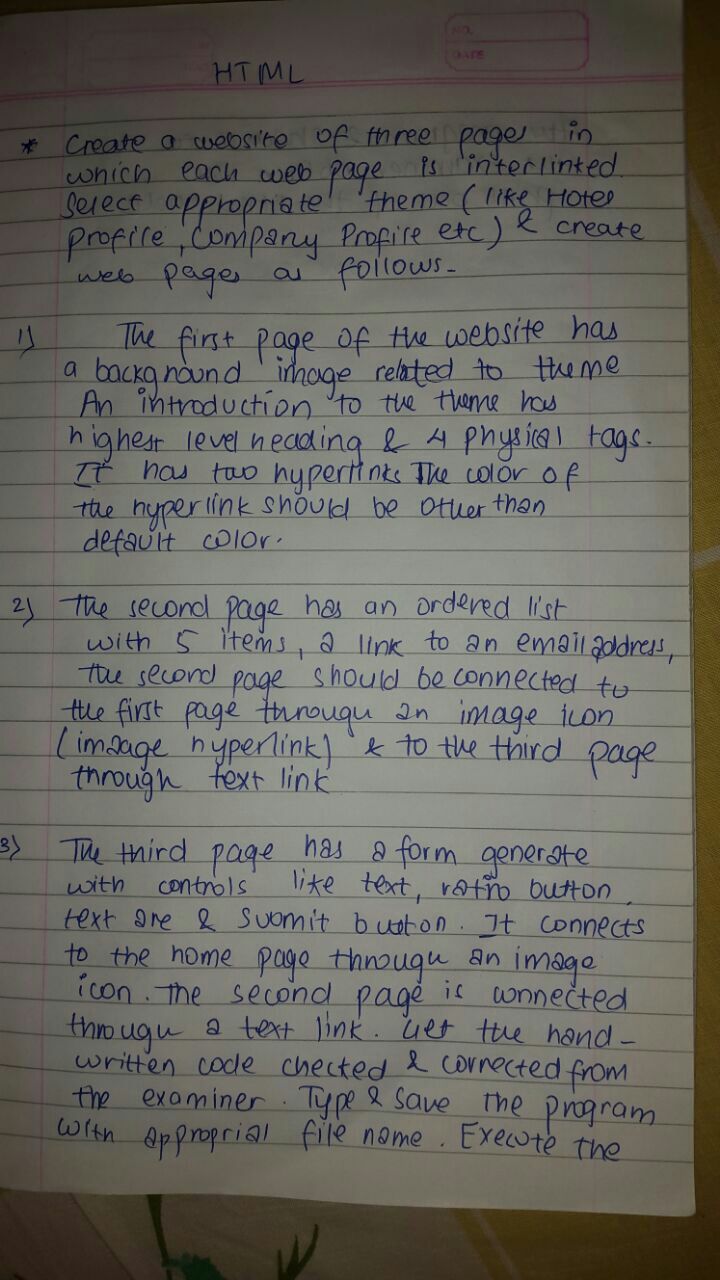 NO.
DATE
HTML
* Create a website of three pages in
which each web page is interlinted.
Select appropriate theme (like Hotel
profile, Company Profile etc) & create
web pages as follows-
1) The first page of the website has
a background image related to theme
An introduction to the theme has
highest level heading & 4 physical tags.
It has two hyperlinks The color of
the hyperlink should be other than
default color.
2) The second page has an ordered list
with 5 items, a link to an email address,
the second page should be connected to
the first page through an image icon
(imaage hyperlink) & to the third page
through text link
3) The third page has a form generate
with controls like text, ratio button,
text are & submit button. It connects
to the home page through an image
icon. The second page is connected
through a text link. Get the hand-
written code chected & corrected from
the examiner. Type & save the program
with approprial file name. Execute the